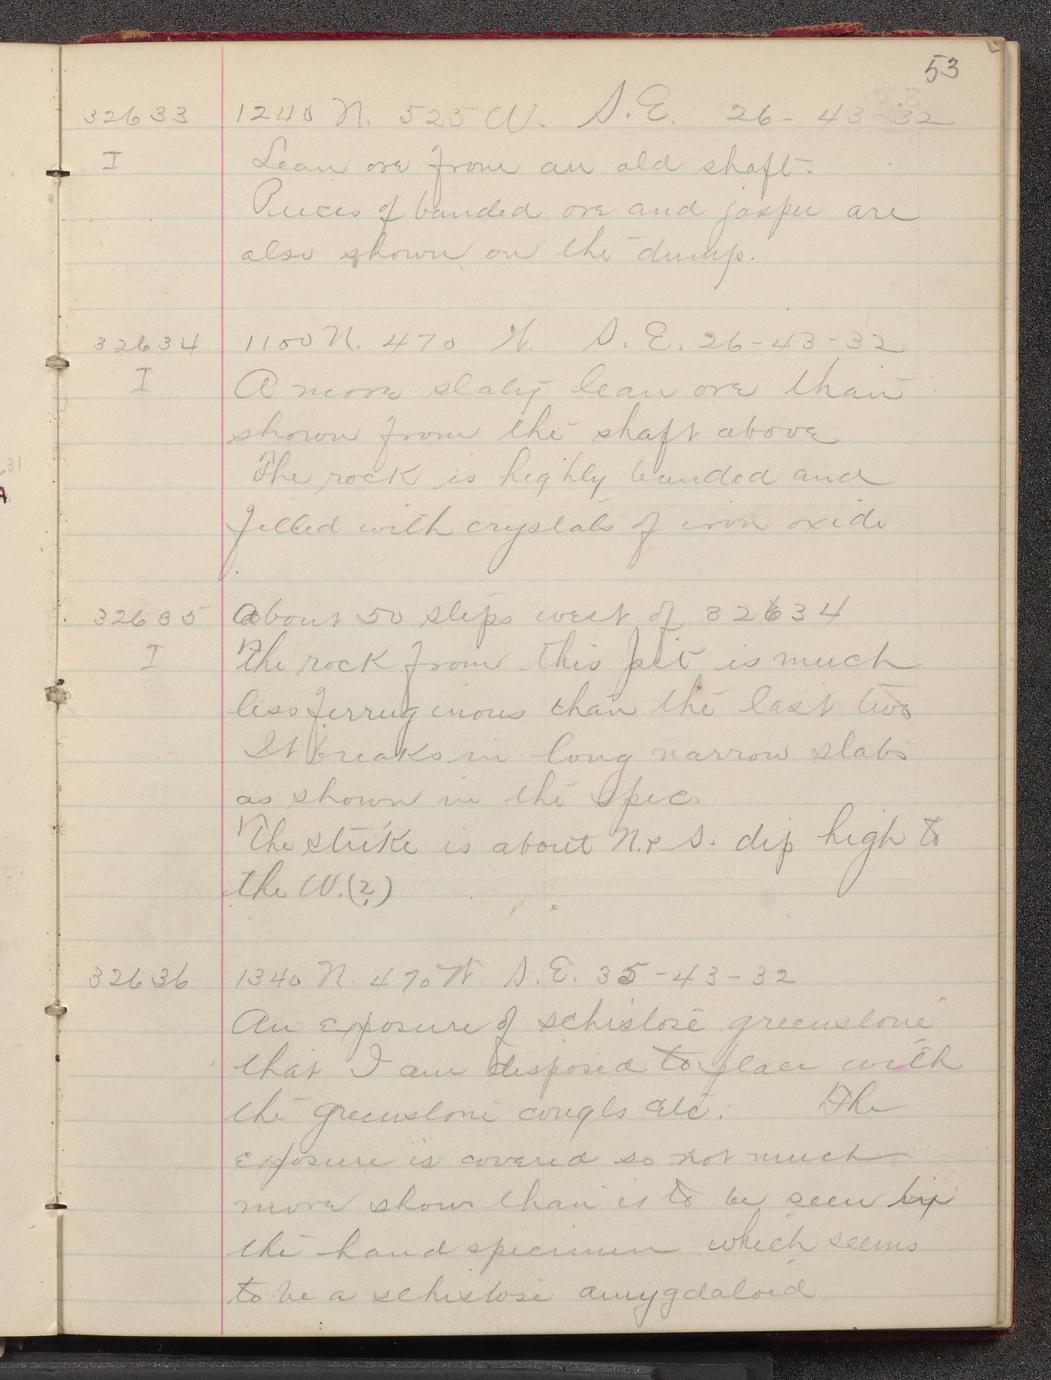 53
32633 1240 N. 525 W. S.E. 26-43-32
I Lean ore from an old shaft.
Pieces of banded ore and jasper are
also shown on the dump.
32634 1100 N. 470 W. S.E. 26-43-32
I A more slaty lean ore than
shown from the shaft above
The rock is highly banded and
filled with crystals of iron oxide
32635 About 50 steps west of 32634
I The rock from this pit is much
less ferruginous than the last two
It breaks in long narrow slabs
as shown in the spec.
The strike is about N. & S. dip high to
the W.(?)
32636 1340 N. 470 W. S.E. 35-43-32
An exposure of schistose greenstone
that I am disposed to place with
the greenstone congls etc. The
exposure is covered so not much
more shows than is to be seen by
the hand specimen which seems
to be a schistose amygdaloid